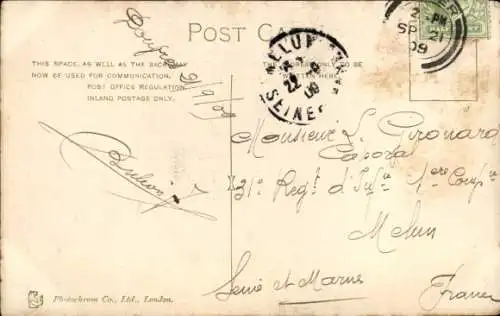 POST CARD
THIS SPACE, AS WELL AS THE BACK, MAY
NOW BE USED FOR COMMUNICATION.
POST OFFICE REGULATION.
INLAND POSTAGE ONLY.
ONLY TO BE
WRITTEN HERE.
MELUN
22 -9
09
SEINE
PM
SP
09
9/9/09
Monsieur L. Gironard
Caporal
31e Regt d'Infie 1ere Compie
Melun
Seine et Marne
France
Photochrom Co., Ltd., London.